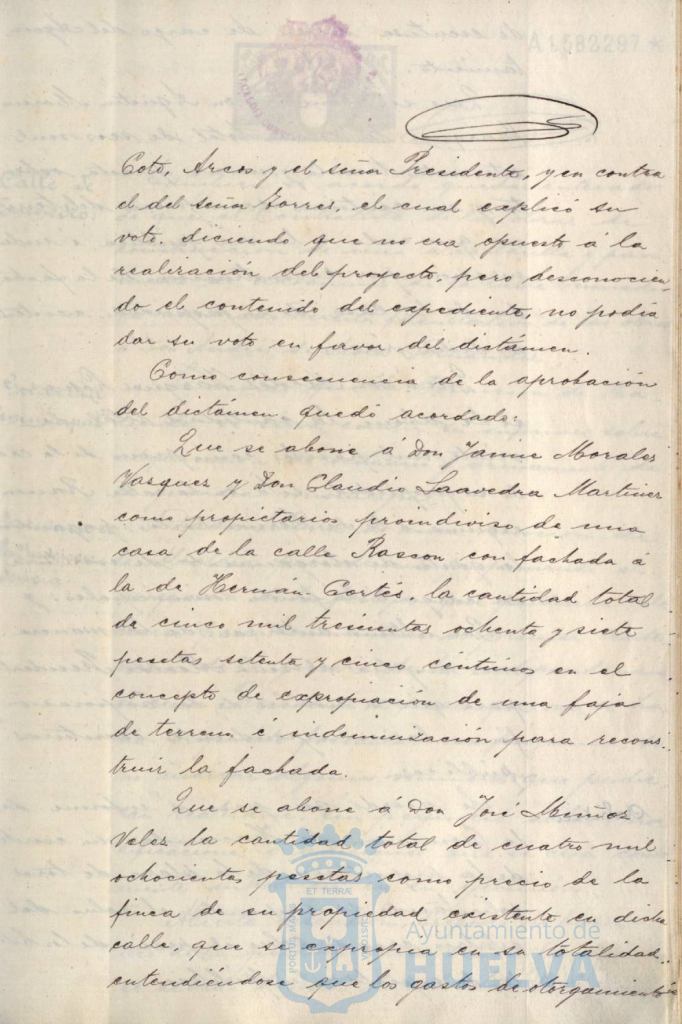 A1582297*
Coto, Arcos y el señor Presidente, y en contra
el del señor Torres, el cual explicó su
voto, diciendo que no era opuesto á la
realización del proyecto, pero desconocien-
do el contenido del expediente, no podia
dar su voto en favor del dictámen.
Como consecuencia de la aprobación
del dictámen, quedó acordado:
Que se abone á Don Jaime Morales
Vasquez y Don Claudio Saavedra Martinez
como propietarios proindiviso de una
casa de la calle Rascon con fachada á
la de Hernán-Cortés, la cantidad total
de cinco mil trescientas ochenta y siete
pesetas setenta y cinco céntimos en el
concepto de expropiación de una faja
de terreno é indemnización para recons-
truir la fachada.
Que se abone á Don José Muñoz
Velez la cantidad total de cuatro mil
ochocientas pesetas como precio de la
finca de su propiedad existente en dicha
calle, que se expropia en su totalidad,
entendiéndose que los gastos de otorgamiento
Ayuntamiento de
HUELVA
ET TERRÆ